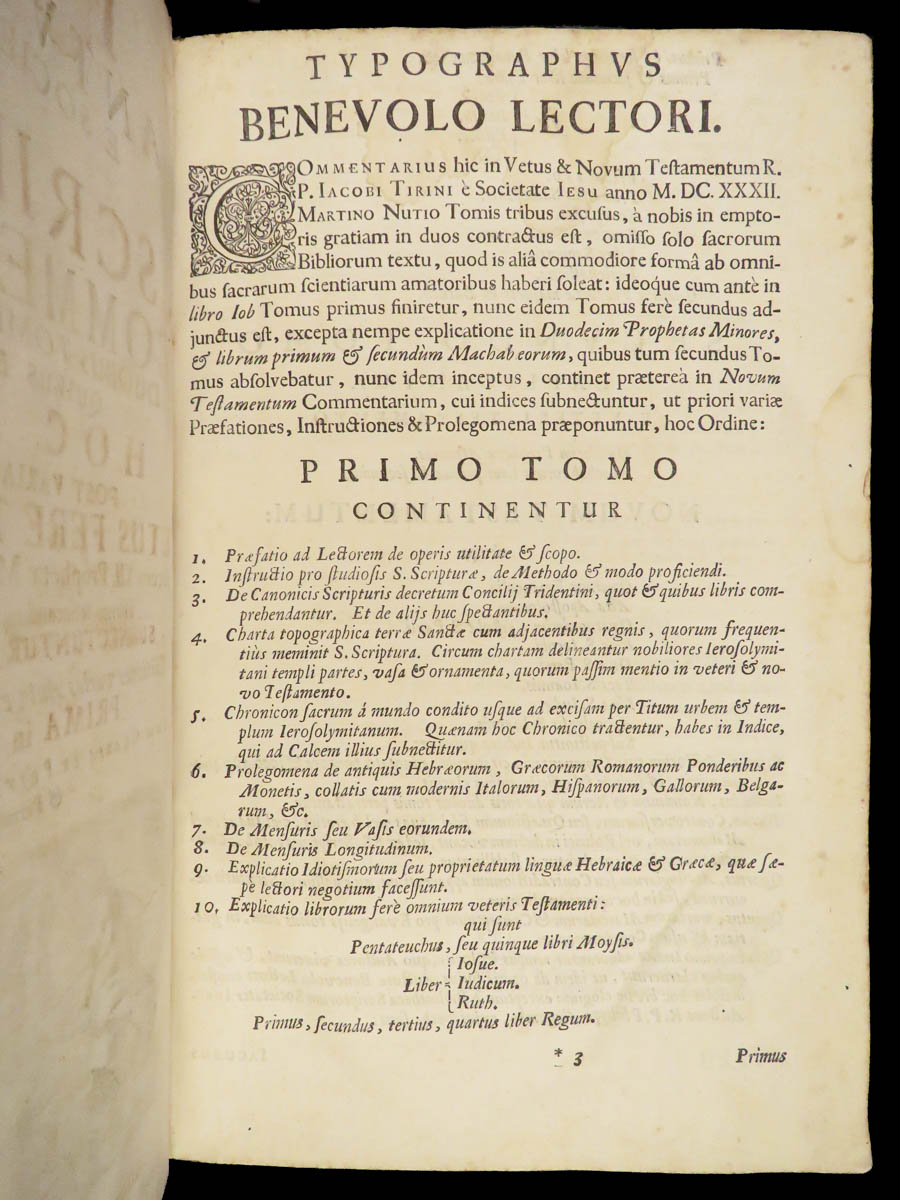 TYPOGRAPHVS
BENEVOLO LECTORI.
COMMENTARIUS hic in Vetus & Novum Teſtamentum R.
P. IACOBI TIRINI è Societate IESU anno M. DC. XXXII.
MARTINO NUTIO Tomis tribus excuſus, à nobis in empto-
ris gratiam in duos contractus eſt, omiſſo ſolo ſacrorum
Bibliorum textu, quod is aliâ commodiore formâ ab omni-
bus ſacrarum ſcientiarum amatoribus haberi ſoleat: ideoq́ue cum antè in
libro Iob Tomus primus finiretur, nunc eidem Tomus ferè ſecundus ad-
junctus eſt, excepta nempe explicatione in Duodecim Prophetas Minores,
& librum primum & ſecundùm Machabeorum, quibus tum ſecundus To-
mus abſolvebatur, nunc idem inceptus, continet præterea in Novum
Teſtamentum Commentarium, cui indices ſubnectuntur, ut priori variæ
Præfationes, Inſtructiones & Prolegomena præponuntur, hoc Ordine:
PRIMO TOMO
CONTINENTUR
1. Præfatio ad Lectorem de operis utilitate & ſcopo.
2. Inſtructio pro ſtudioſis S. Scripturæ, de Methodo & modo proficiendi.
3. De Canonicis Scripturis decretum Concilij Tridentini, quot & quibus libris com-
prehendantur. Et de alijs huc ſpectantibus.
4. Charta topographica terræ Sanctæ cum adjacentibus regnis, quorum frequen-
tiùs meminit S. Scriptura. Circum chartam delineantur nobiliores Ieroſolymi-
tani templi partes, vaſa & ornamenta, quorum paſſim mentio in veteri & no-
vo Teſtamento.
5. Chronicon ſacrum á mundo condito uſque ad exciſam per Titum urbem & tem-
plum Ieroſolymitanum. Quænam hoc Chronico tractentur, habes in Indice,
qui ad Calcem illius ſubnectitur.
6. Prolegomena de antiquis Hebræorum, Græcorum Romanorum Ponderibus ac
Monetis, collatis cum modernis Italorum, Hiſpanorum, Gallorum, Belga-
rum, &c.
7. De Menſuris ſeu Vaſis eorundem.
8. De Menſuris Longitudinum.
9. Explicatio Idiotiſmorum ſeu proprietatum linguæ Hebraicæ & Græcæ, quæ ſæ-
pè lectori negotium faceſſunt.
10. Explicatio librorum ferè omnium veteris Teſtamenti:
qui ſunt
Pentateuchus, ſeu quinque libri Moyſis.
Ioſue.
Liber Iudicum.
Ruth.
Primus, ſecundus, tertius, quartus liber Regum.
* 3 Primus